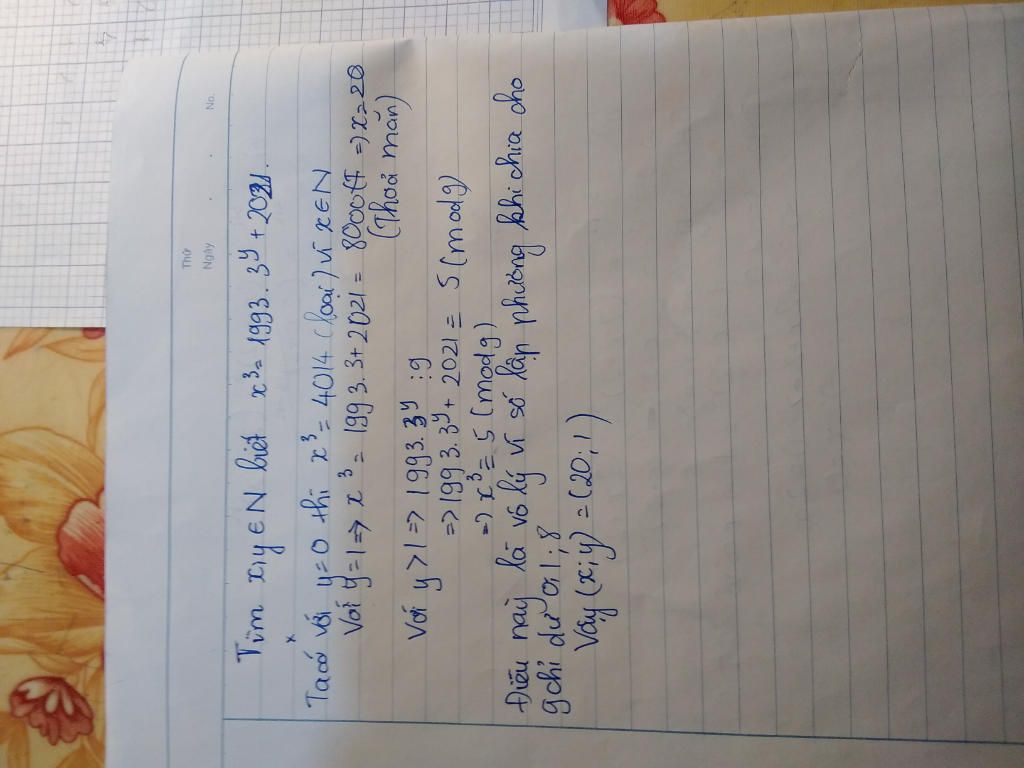 Thứ
Ngày . . No.
Tìm x,y ∈ N biết x³ = 1993. 3^y + 2021.
Ta có với y=0 thì x³ = 4014 (loại) vì x ∈ N
Với y=1 => x³ = 1993.3 + 2021 = 8000 => x=20
(Thoả mãn)
Với y>1 => 1993. 3^y ⋮ 9
=> 1993. 3^y + 2021 ≡ 5 (mod 9)
=> x³ ≡ 5 (mod 9)
Điều này là vô lý vì số lập phương khi chia cho
9 chỉ dư 0;1;8
Vậy (x;y) = (20;1)